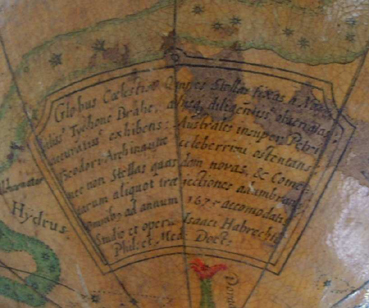 Globus Coelestis Omnes Stellas fixas a Nobili
Tychone Brahe, diligentius observatas,
accuratius exhibens: Australes insuper Petri
Theodori celeberrimi ostentans,
nec non Stellas quasdam novas, & Come
tarum aliquot traiectiones adumbrans,
omnibus ad annum accomodatis
studio et opera Isaaci Habrechti
Phil: et Med. Doct:
Hydrus